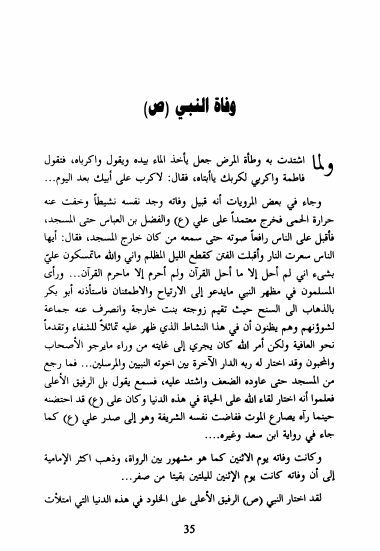 وفاة النبي (ص)
ولما اشتدت به وطأة المرض جعل يأخذ الماء بيده ويقول واكرباه، فتقول
فاطمة واكربي لكربك ياأبتاه، فقال: لاكرب على أبيك بعد اليوم...
وجاء في بعض المرويات أنه قبيل وفاته وجد نفسه نشيطاً وخفت عنه
حرارة الحمى فخرج معتمداً على علي (ع) والفضل بن العباس حتى المسجد،
فأقبل على الناس رافعاً صوته حتى سمعه من كان خارج المسجد، فقال: أيها
الناس سعرت النار وأقبلت الفتن كقطع الليل المظلم واني والله ماتمسكون عليّ
بشيء اني لم أحل إلا ما أحل القرآن ولم أحرم إلا ماحرم القرآن... ورأى
المسلمون في مظهر النبي مايدعو إلى الارتياح والاطمئنان فاستأذنه أبو بكر
بالذهاب الى السنح حيث تقيم زوجته بنت خارجة وانصرف عنه جماعة
لشؤونهم وهم يظنون أن في هذا النشاط الذي ظهر عليه تماثلاً للشفاء وتقدماً
نحو العافية ولكن أمر الله كان يجري إلى غايته من وراء مايرجو الأصحاب
والمحبون وقد اختار له ربه الدار الآخرة بين اخوته النبيين والمرسلين... فما رجع
من المسجد حتى عاوده الضعف واشتد عليه، فسمع يقول بل الرفيق الأعلى
فعلموا أنه اختار لقاء الله على الحياة في هذه الدنيا وكان على (ع) قد احتضنه
حينما رآه يصارع الموت ففاضت نفسه الشريفة وهو إلى صدر علي (ع) كما
جاء في رواية ابن سعد وغيره....
وكانت وفاته يوم الاثنين كما هو مشهور بين الرواة، وذهب اكثر الإمامية
إلى أن وفاته كانت يوم الإثنين لليلتين بقيتا من صفر...
لقد اختار النبي (ص) الرفيق الأعلى على الخلود في هذه الدنيا التي امتلأت
35